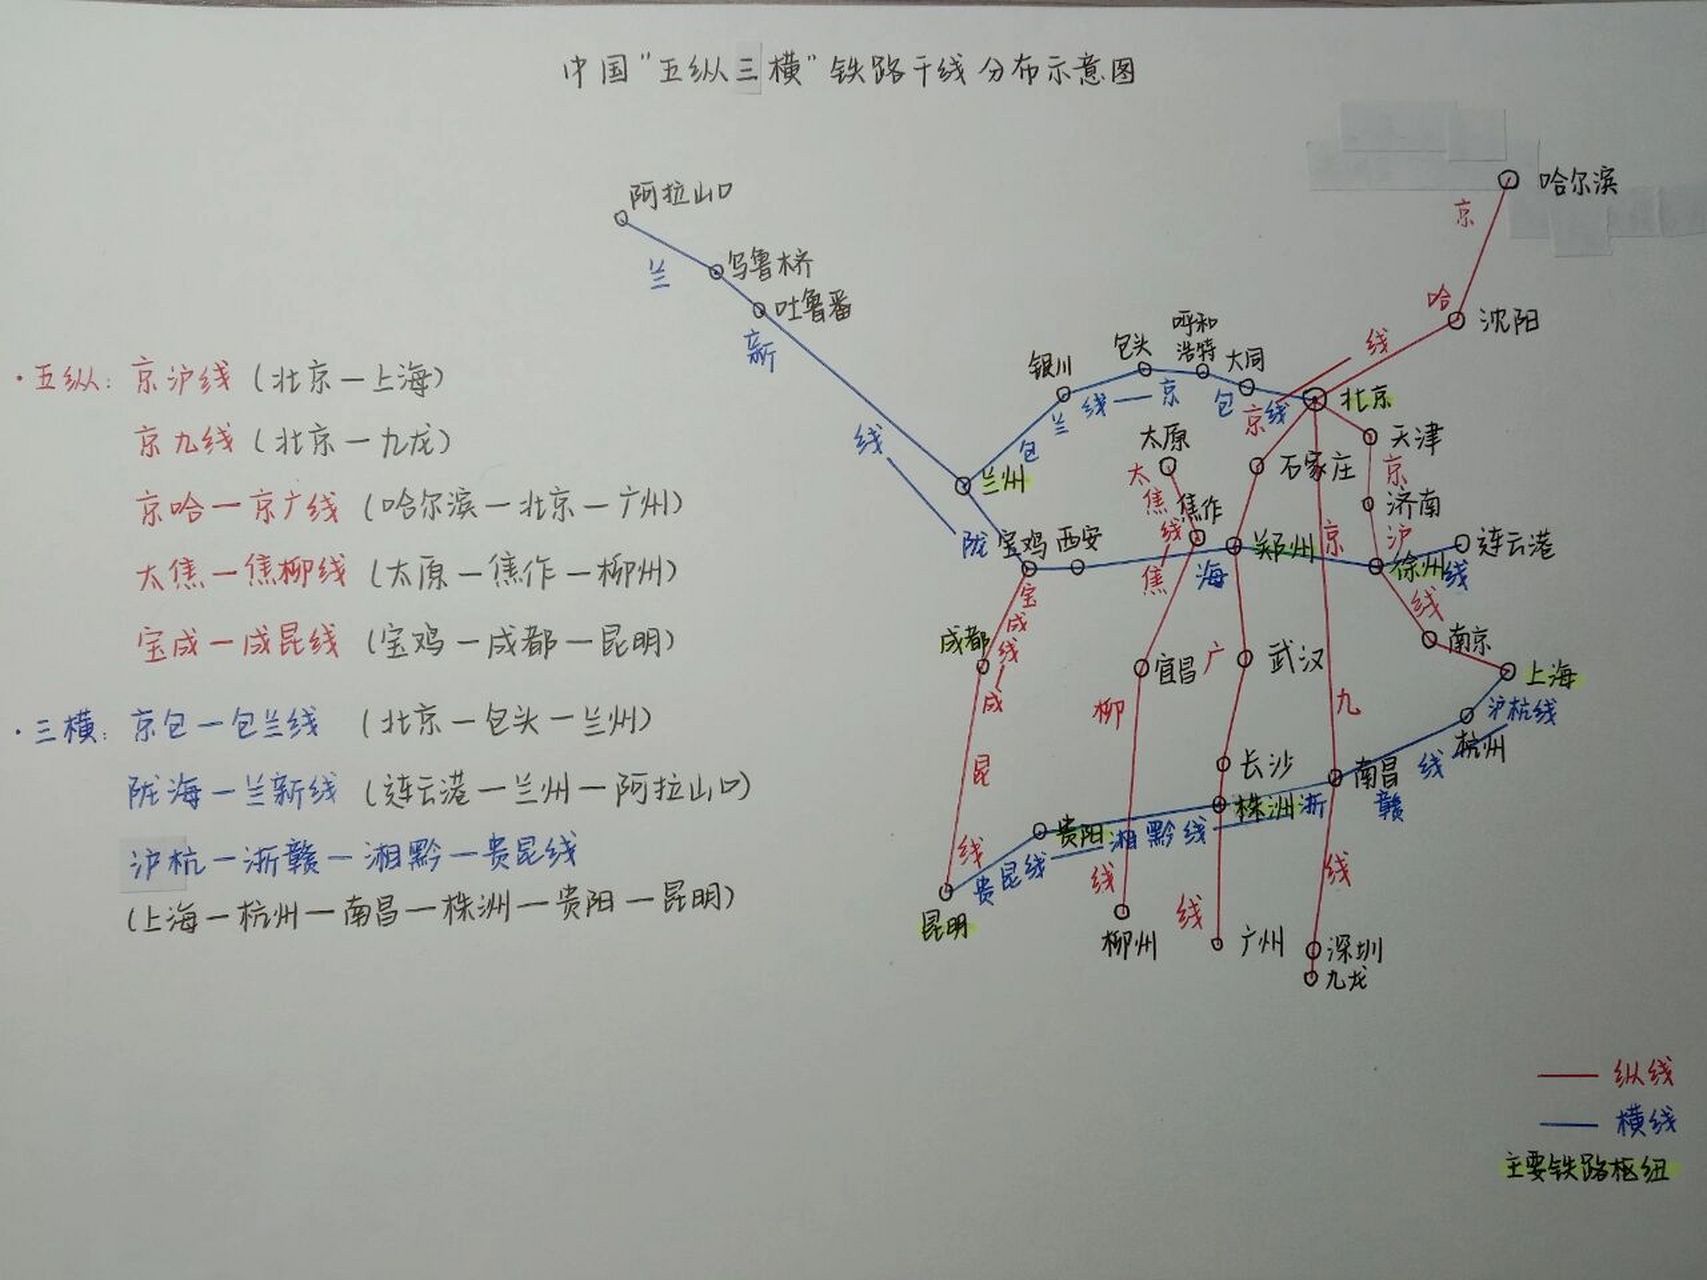 中国“五纵三横”铁路干线分布示意图
·五纵：京沪线（北京—上海）
京九线（北京—九龙）
京哈—京广线（哈尔滨—北京—广州）
太焦—焦柳线（太原—焦作—柳州）
宝成—成昆线（宝鸡—成都—昆明）
·三横：京包—包兰线（北京—包头—兰州）
陇海—兰新线（连云港—兰州—阿拉山口）
沪杭—浙赣—湘黔—贵昆线
（上海—杭州—南昌—株洲—贵阳—昆明）
阿拉山口
乌鲁木齐
吐鲁番
兰
新
线
陇
海
线
兰州
银川
包头
呼和
浩特
大同
包
兰
线—京
包
线
北京
哈尔滨
沈阳
京
哈
线
京
广
线
天津
济南
徐州
连云港
南京
上海
京
沪
线
太原
焦作
太
焦
线
焦
柳
线
石家庄
郑州
宝鸡
西安
宝
成
线
成
昆
线
成都
宜昌
武汉
长沙
株洲
南昌
杭州
沪杭线
浙
赣
线
湘黔线
贵昆线
贵阳
昆明
京
九
线
柳州
广州
深圳
九龙
纵线
横线
主要铁路枢纽